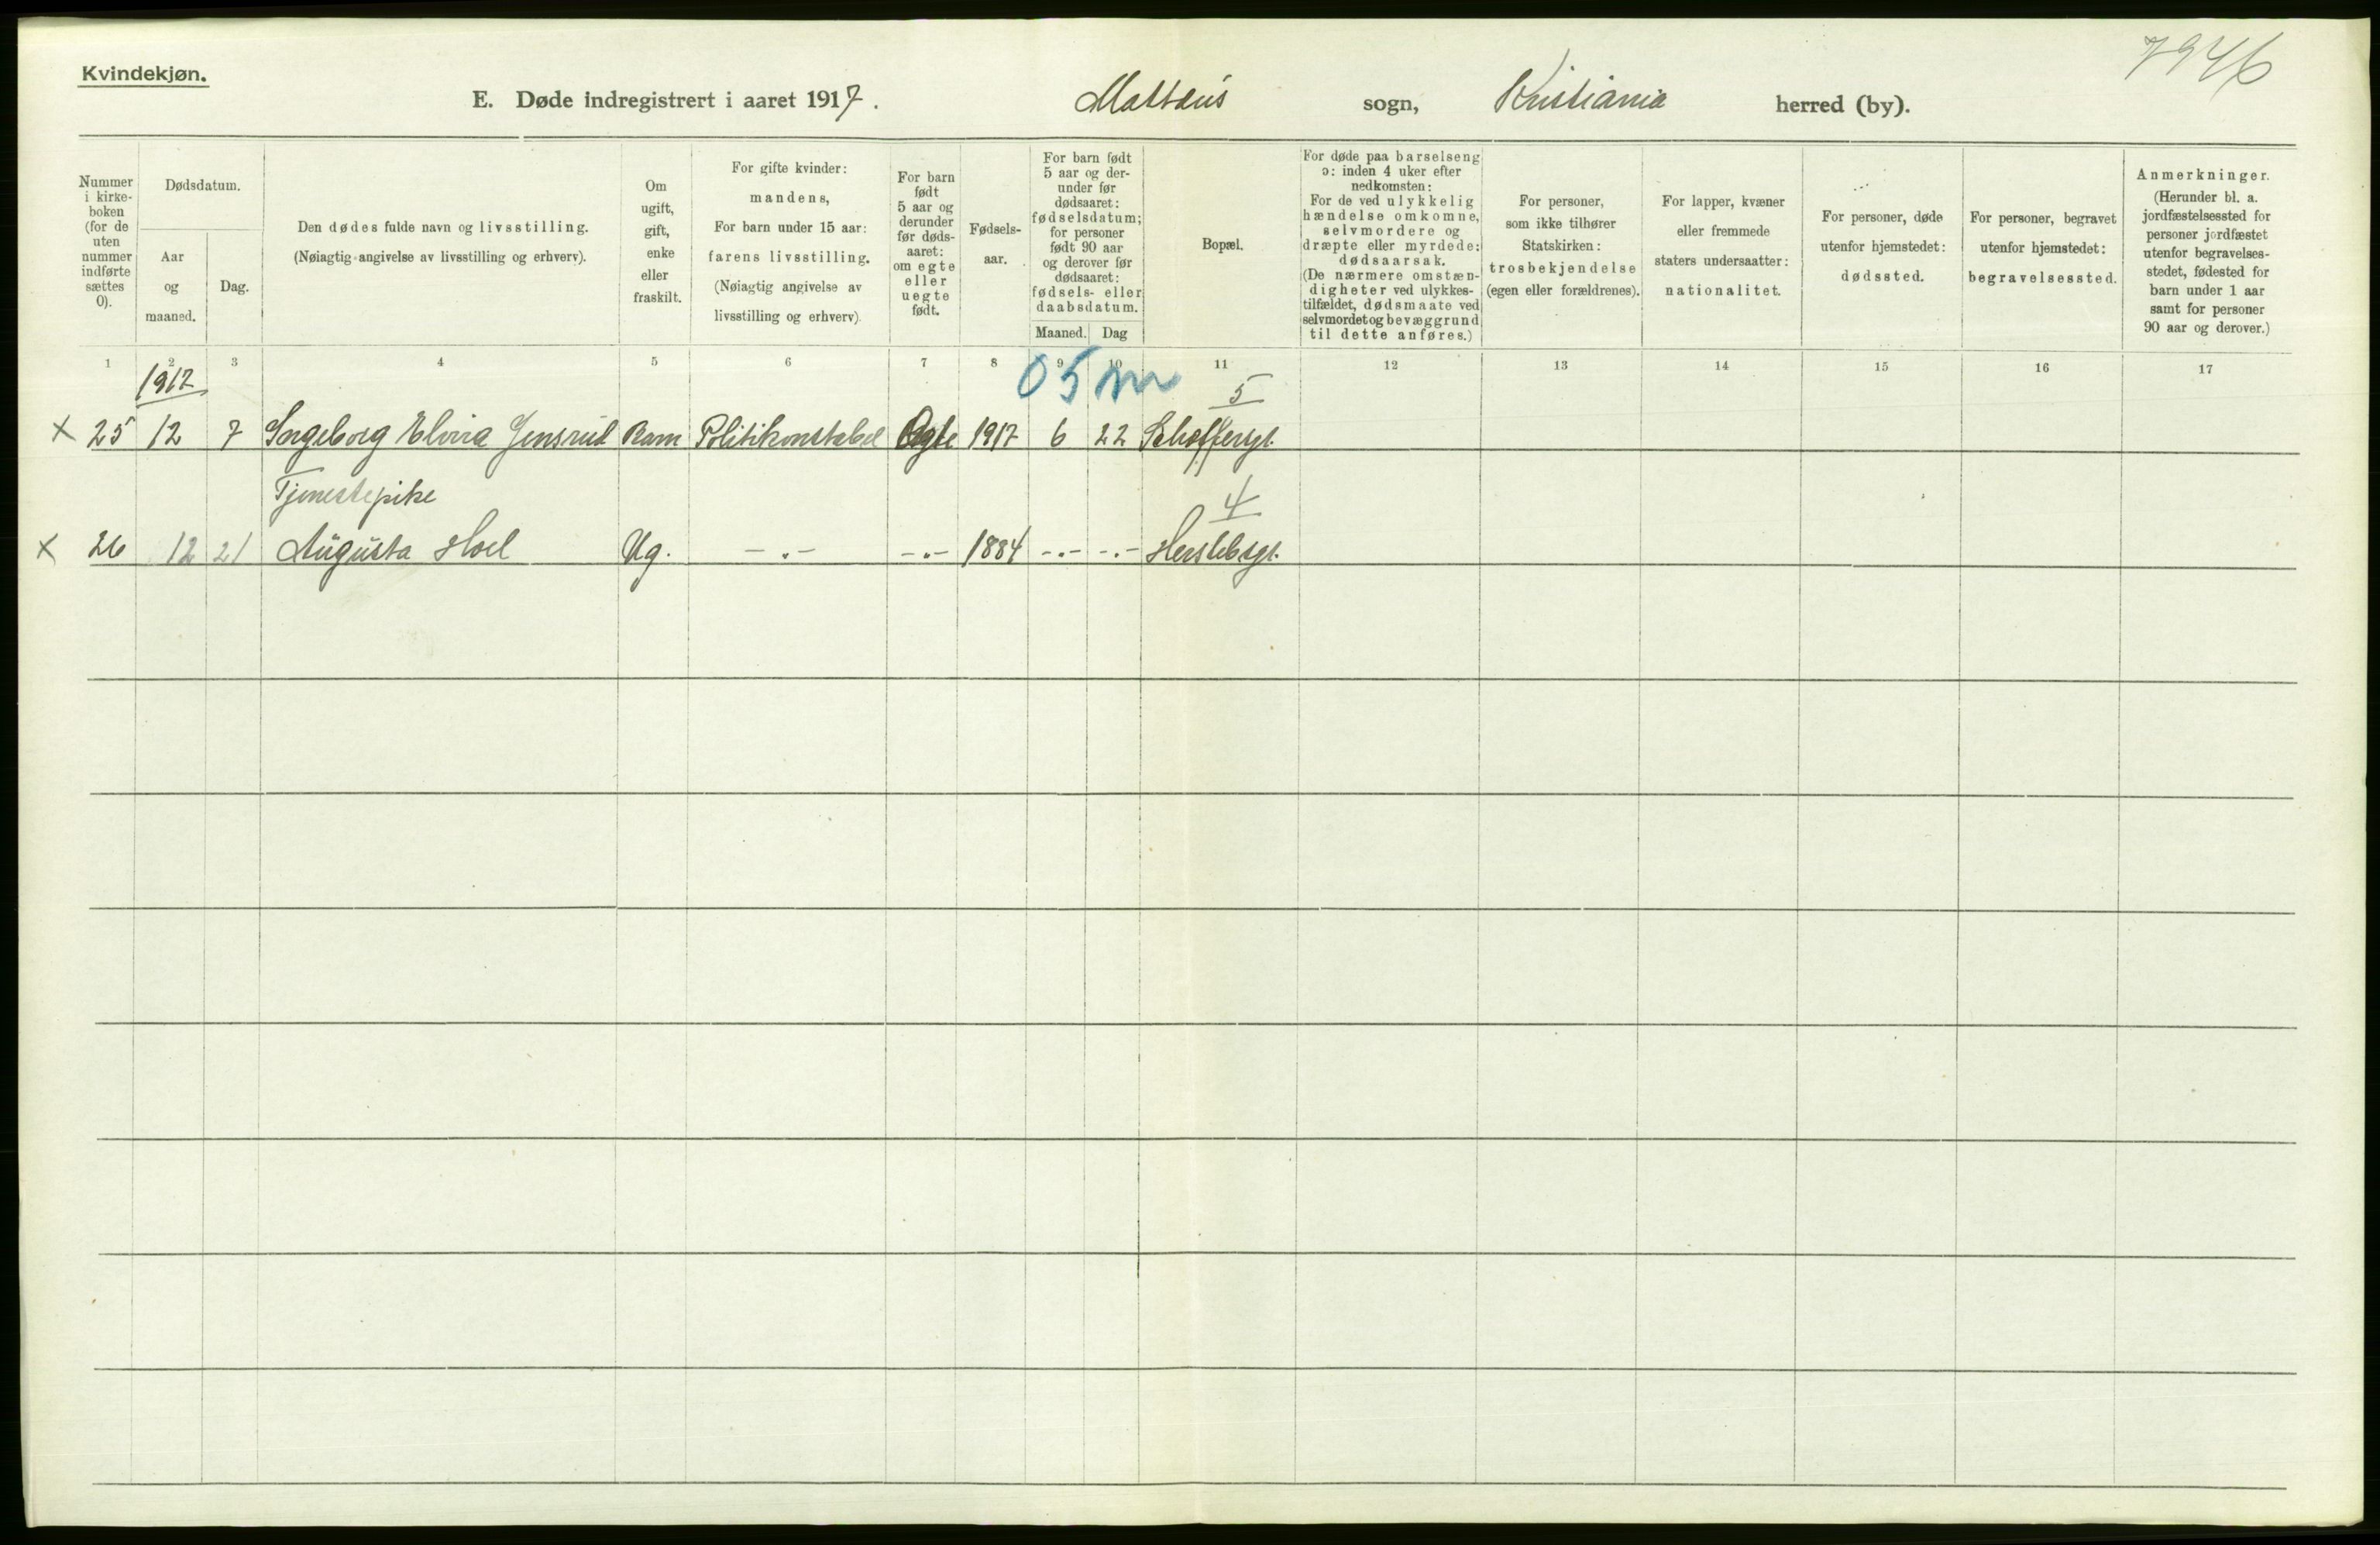 7946
Kvindekjøn.
E. Døde indregistrert i aaret 1917. Mattæus sogn, Kristiania herred (by).
Nummer i kirke-boken (for de uten nummer indførte sættes 0).
Dødsdatum.
Aar og maaned.
Dag.
Den dødes fulde navn og livsstilling.
(Nøiagtig angivelse av livsstilling og erhverv).
Om ugift, gift, enke eller fraskilt.
For gifte kvinder: mandens,
For barn under 15 aar: farens livsstilling.
(Nøiagtig angivelse av livsstilling og erhverv).
For barn født 5 aar og derunder før døds-aaret: om egte eller uegte født.
Fødsels-aar.
For barn født 5 aar og der-under før dødsaaret: fødselsdatum; for personer født 90 aar og derover før dødsaaret: fødsels- eller daabsdatum.
Maaned. Dag
Bopæl.
For døde paa barselseng ɔ: inden 4 uker efter nedkomsten:
For de ved ulykkelig hændelse omkomne, selvmordere og dræpte eller myrdede: dødsaarsak.
(De nærmere omstæn-digheter ved ulykkes-tilfældet, dødsmaate ved selvmordet og bevæggrund til dette anføres.)
For personer, som ikke tilhører Statskirken: trosbekjendelse (egen eller forældrenes).
For lapper, kvæner eller fremmede staters undersaatter: nationalitet.
For personer, døde utenfor hjemstedet: dødssted.
For personer, begravet utenfor hjemstedet: begravelsessted.
Anmerkninger.
(Herunder bl. a. jordfæstelsessted for personer jordfæstet utenfor begravelses-stedet, fødested for barn under 1 aar samt for personer 90 aar og derover.)
1 2 3 4 5 6 7 8 9 10 11 12 13 14 15 16 17
1917 05 m 5
× 25 12 7 Ingeborg Elvira Jensrud Barn Politikonstabel Ægte 1917 6 22 Schøffersgt.
Tjenestepike 4
× 26 12 21 Augusta Hoel Ug. -"- -"- 1884 -"- -"- Herslebsgt.